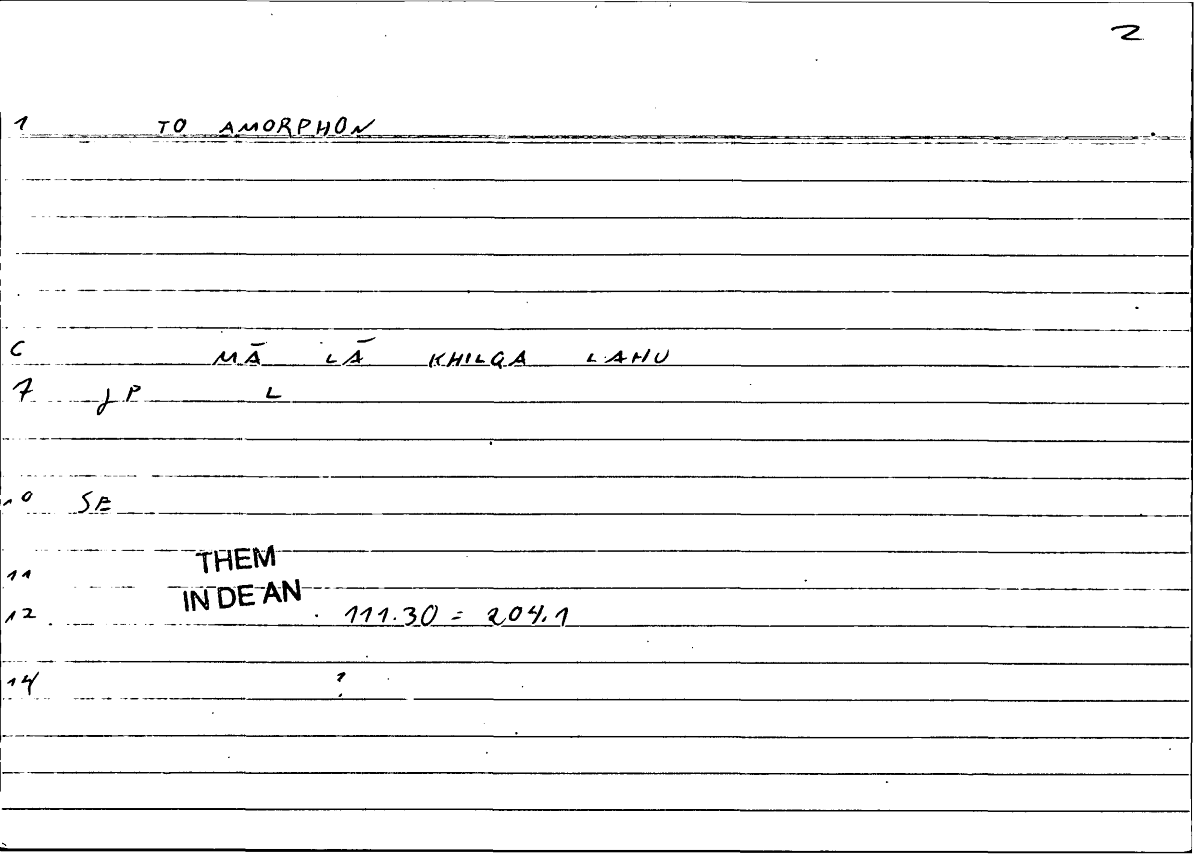 2
1 TO AMORPHON
6 MĀ LĀ KHILQA LAHU
7 JP L
10 SE
THEM
11
IN DE AN
12 111.30 = 204.1
14 ?